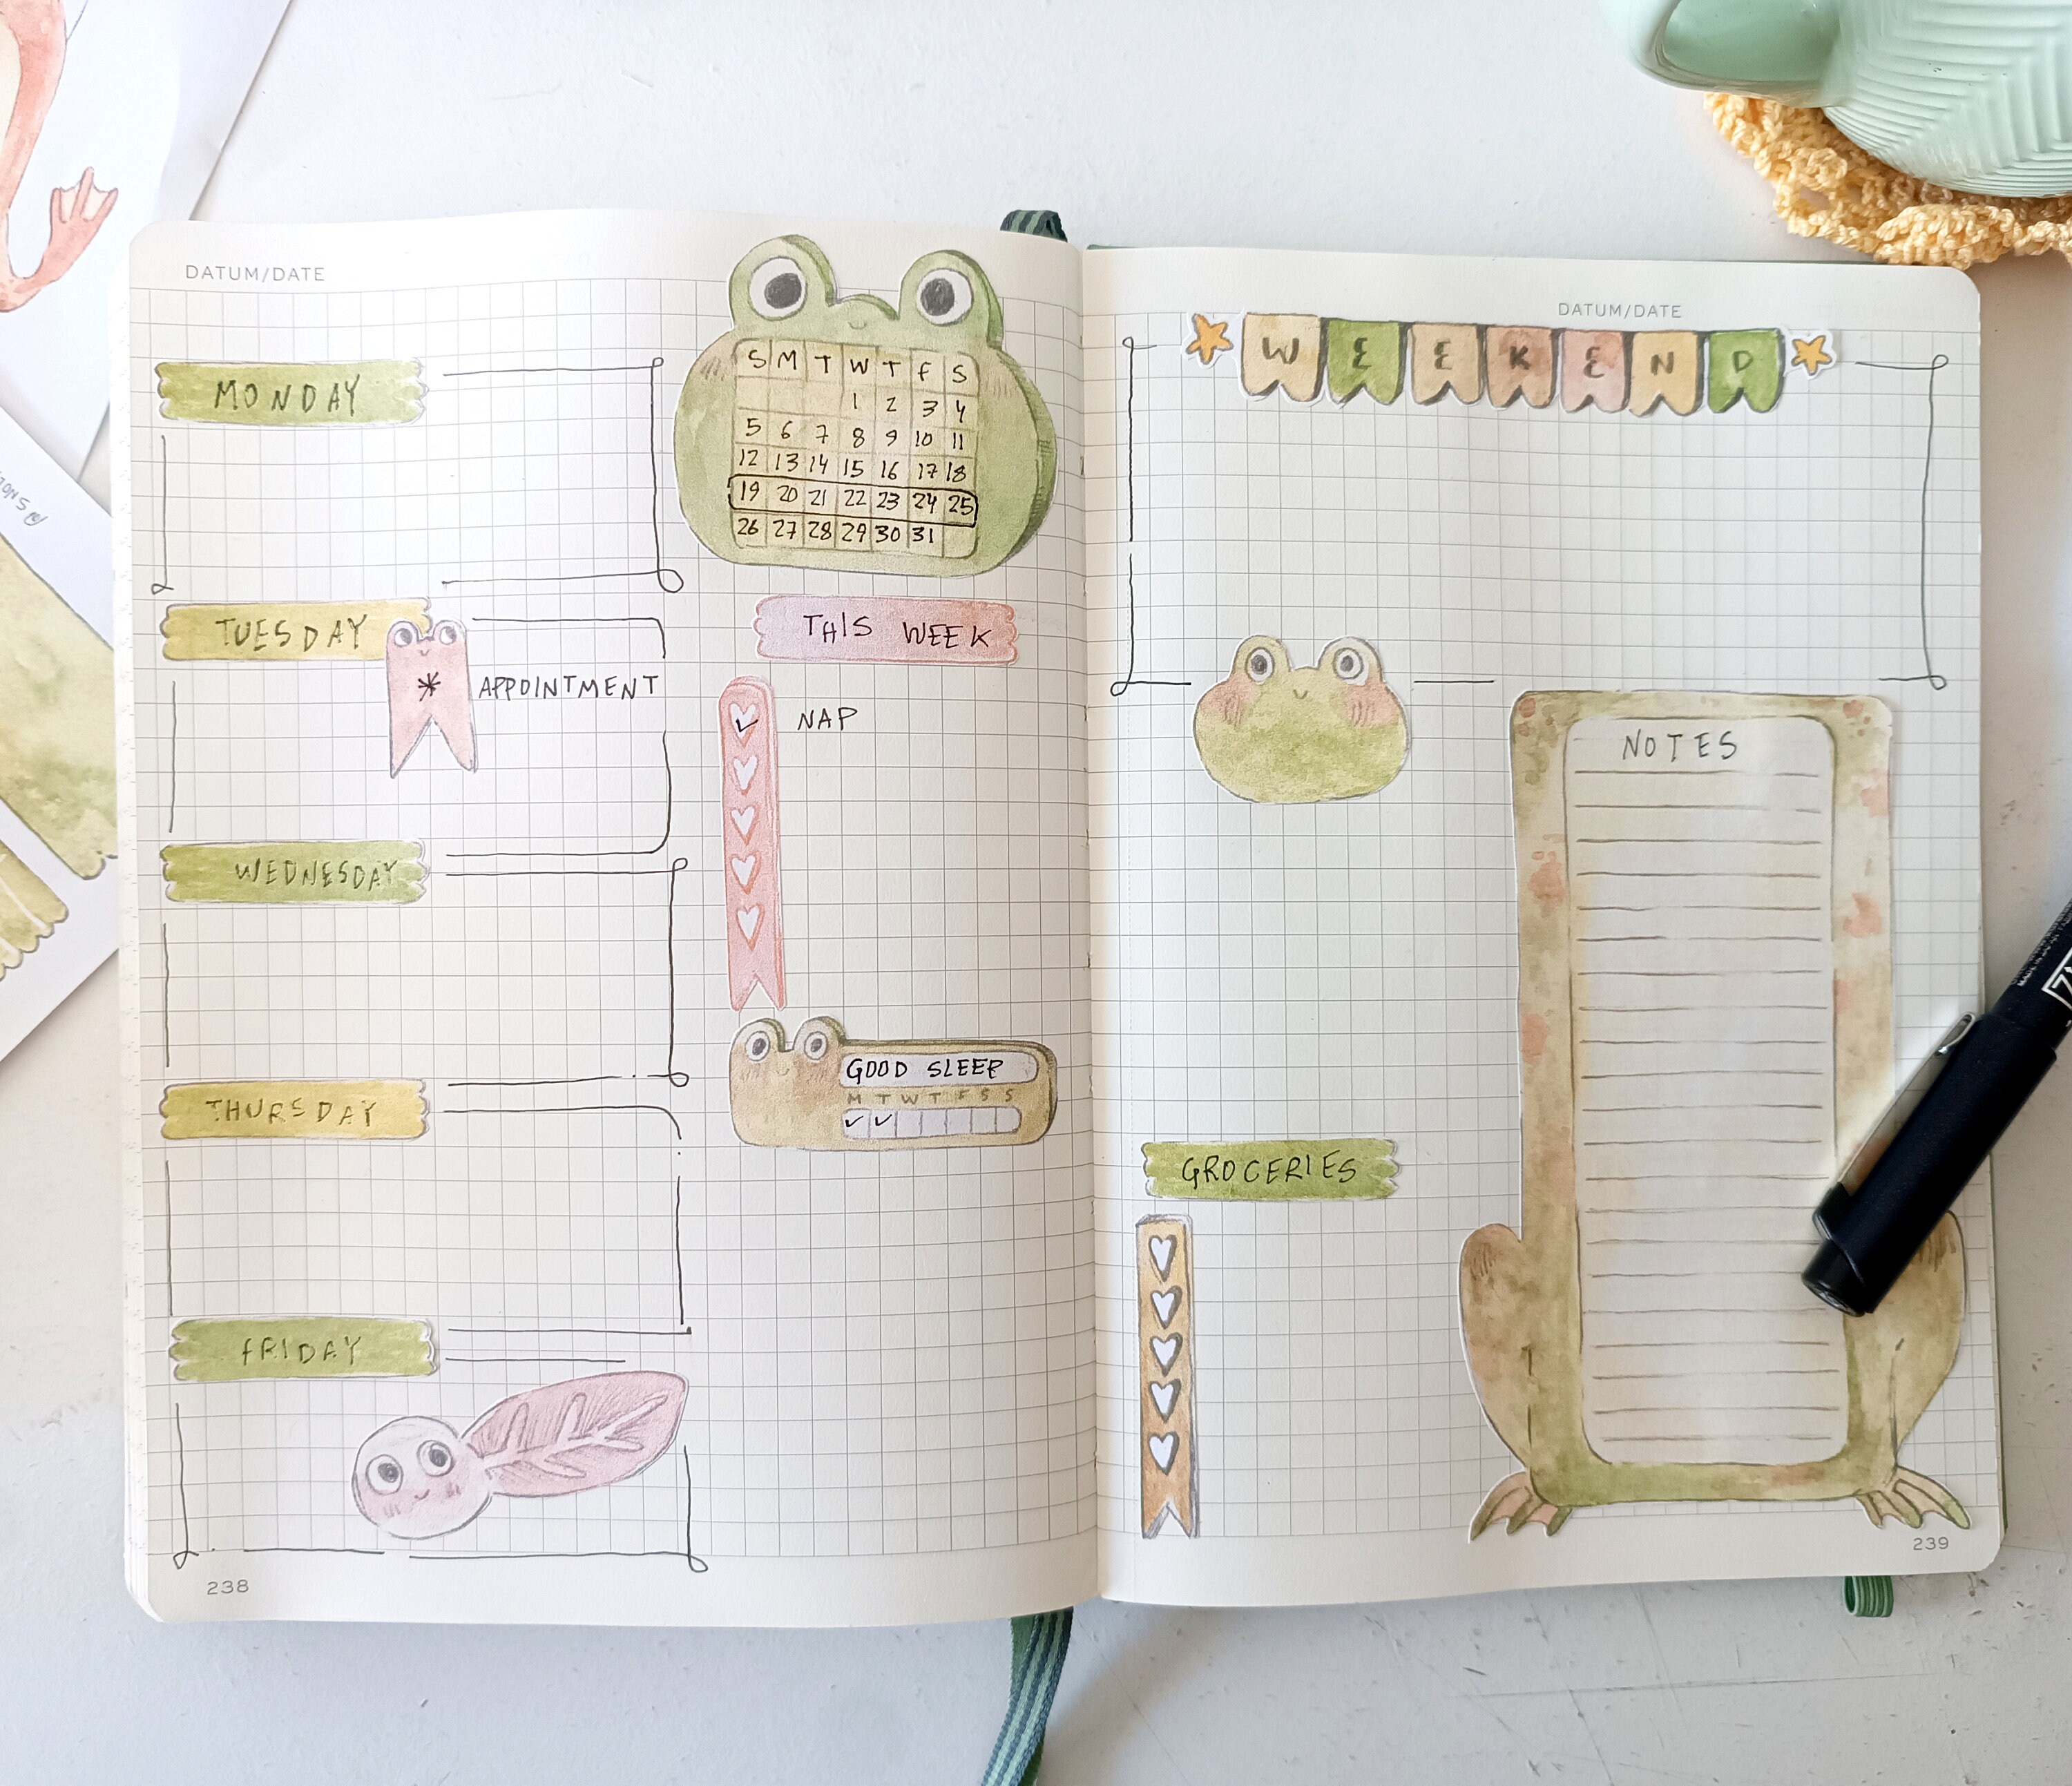 DATUM/DATE
MONDAY
S M T W T F S
1 2 3 4
5 6 7 8 9 10 11
12 13 14 15 16 17 18
19 20 21 22 23 24 25
26 27 28 29 30 31
TUESDAY
* APPOINTMENT
THIS WEEK
✓ NAP
WEDNESDAY
THURSDAY
GOOD SLEEP
M T W T F S S
✓ ✓
FRIDAY
238
DATUM/DATE
WEEKEND
NOTES
GROCERIES
239